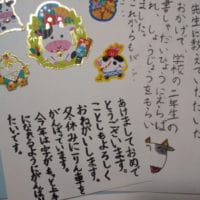 先生に教えていただいた
おかげで、学校の二年生の
書きぞめだいひょうにえらばれ
しょうじょうをもらい
ました。
これからもが
あけましておめで
とうございます。
ことしもよろしく
おねがいします。
冬休みに
がんばっています。
今年は字がもっと
になれるようにがんば
たいです。